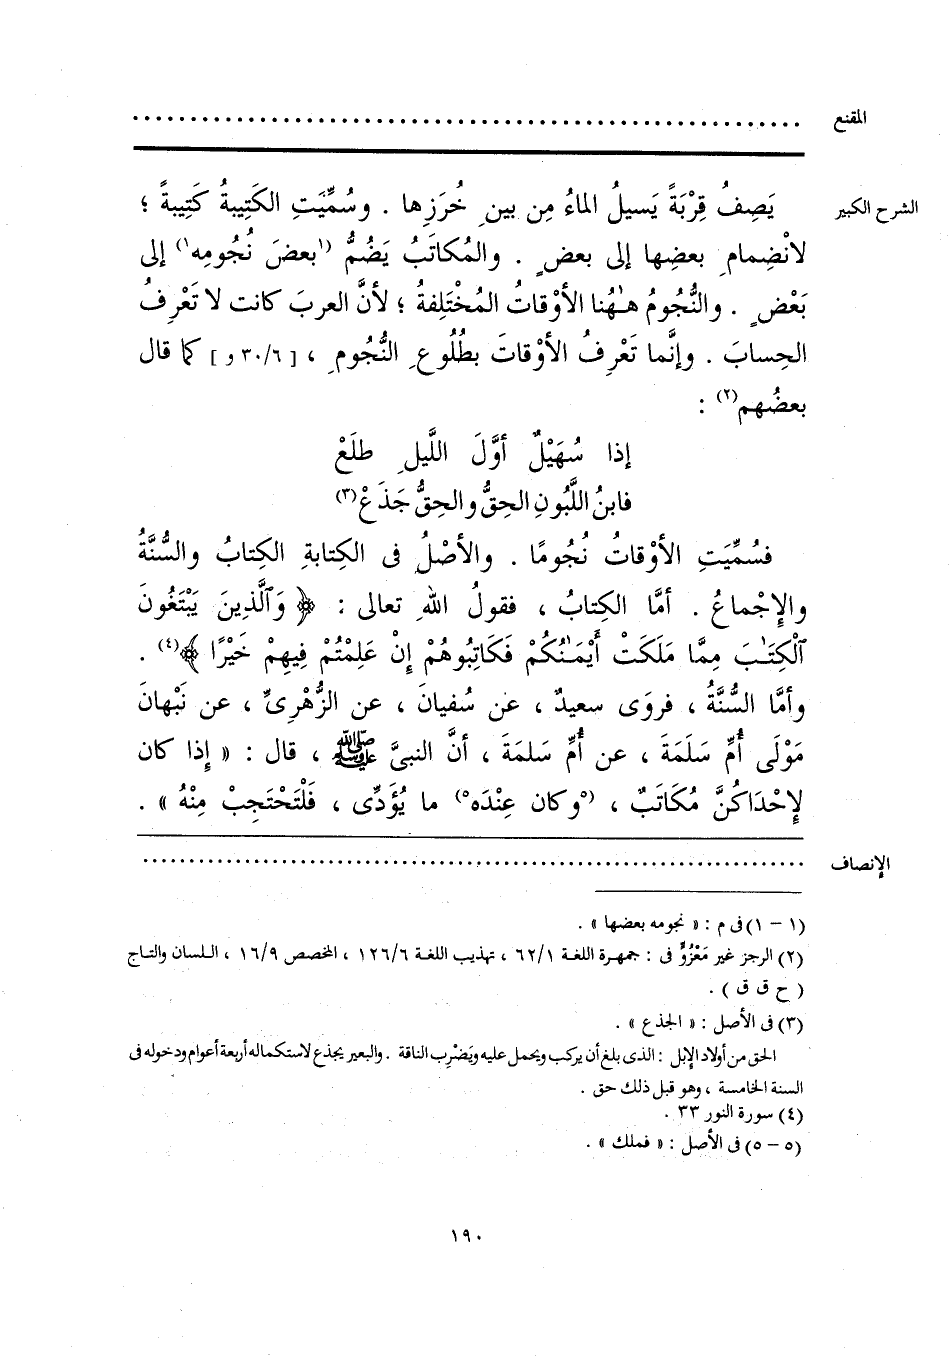 المقنع ............................................................
الشرح الكبير يَصِفُ قِرْبَةً يَسيلُ الماءُ مِن بينِ خُرَزِها . وسُمِّيَتِ الكَتِيبةُ كَتِيبةً ؛
لانْضِمامِ بعضِها إلى بعضٍ . والمُكاتَبُ يَضُمُّ (١بعضَ نُجُومِه١) إلى
بَعْضٍ . والنُّجُومُ هٰهُنا الأوْقاتُ المُخْتَلِفةُ ؛ لأنَّ العربَ كانت لا تَعْرِفُ
الحِسابَ . وإنَّما تَعْرِفُ الأوْقاتَ بطُلُوعِ النُّجُومِ ، [ ٣٠/٦ و ] كما قال
بعضُهم(٢) :
إذا سُهَيْلٌ أوَّلَ اللَّيلِ طلَعْ
فابنُ اللَّبُونِ الحِقُّ والحِقُّ جَذَعْ(٣)
فسُمِّيَتِ الأوْقاتُ نُجُومًا . والأصْلُ فى الكِتابةِ الكِتابُ والسُّنَّةُ
والإِجْماعُ . أمَّا الكِتابُ ، فقولُ اللهِ تعالى : ﴿ وَٱلَّذِينَ يَبْتَغُونَ
ٱلْكِتَٰبَ مِمَّا مَلَكَتْ أَيْمَٰنُكُمْ فَكَاتِبُوهُمْ إِنْ عَلِمْتُمْ فِيهِمْ خَيْرًا ﴾(٤) .
وأمَّا السُّنَّةُ ، فروَى سعيدٌ ، عن سُفيانَ ، عن الزُّهْرِىِّ ، عن نَبْهانَ
مَوْلَى أُمِّ سَلَمَةَ ، عن أُمِّ سلمةَ ، أنَّ النبىَّ ﷺ ، قال : « إِذا كان
لِإحْدَاكُنَّ مُكَاتَبٌ ، (٥وكان عِنْدَه٥) ما يُؤَدِّى ، فَلْتَحْتَجِبْ مِنْهُ » .
الإنصاف ............................................................
(١ – ١) فى م : « نجومه بعضها » .
(٢) الرجز غير مَعْزُوٍّ فى : جمهرة اللغة ٦٢/١ ، تهذيب اللغة ١٢٦/٦ ، المخصص ١٦/٩ ، اللسان والتاج
( ح ق ق ) .
(٣) فى الأصل : « الجذع » .
الحق من أولاد الإبل : الذى بلغ أن يركب ويحمل عليه ويَضْرِب الناقة . والبعير يجذع لاستكماله أربعة أعوام ودخوله فى
السنة الخامسة ، وهو قبل ذلك حق .
(٤) سورة النور ٣٣ .
(٥ – ٥) فى الأصل : « فملك » .
١٩٠